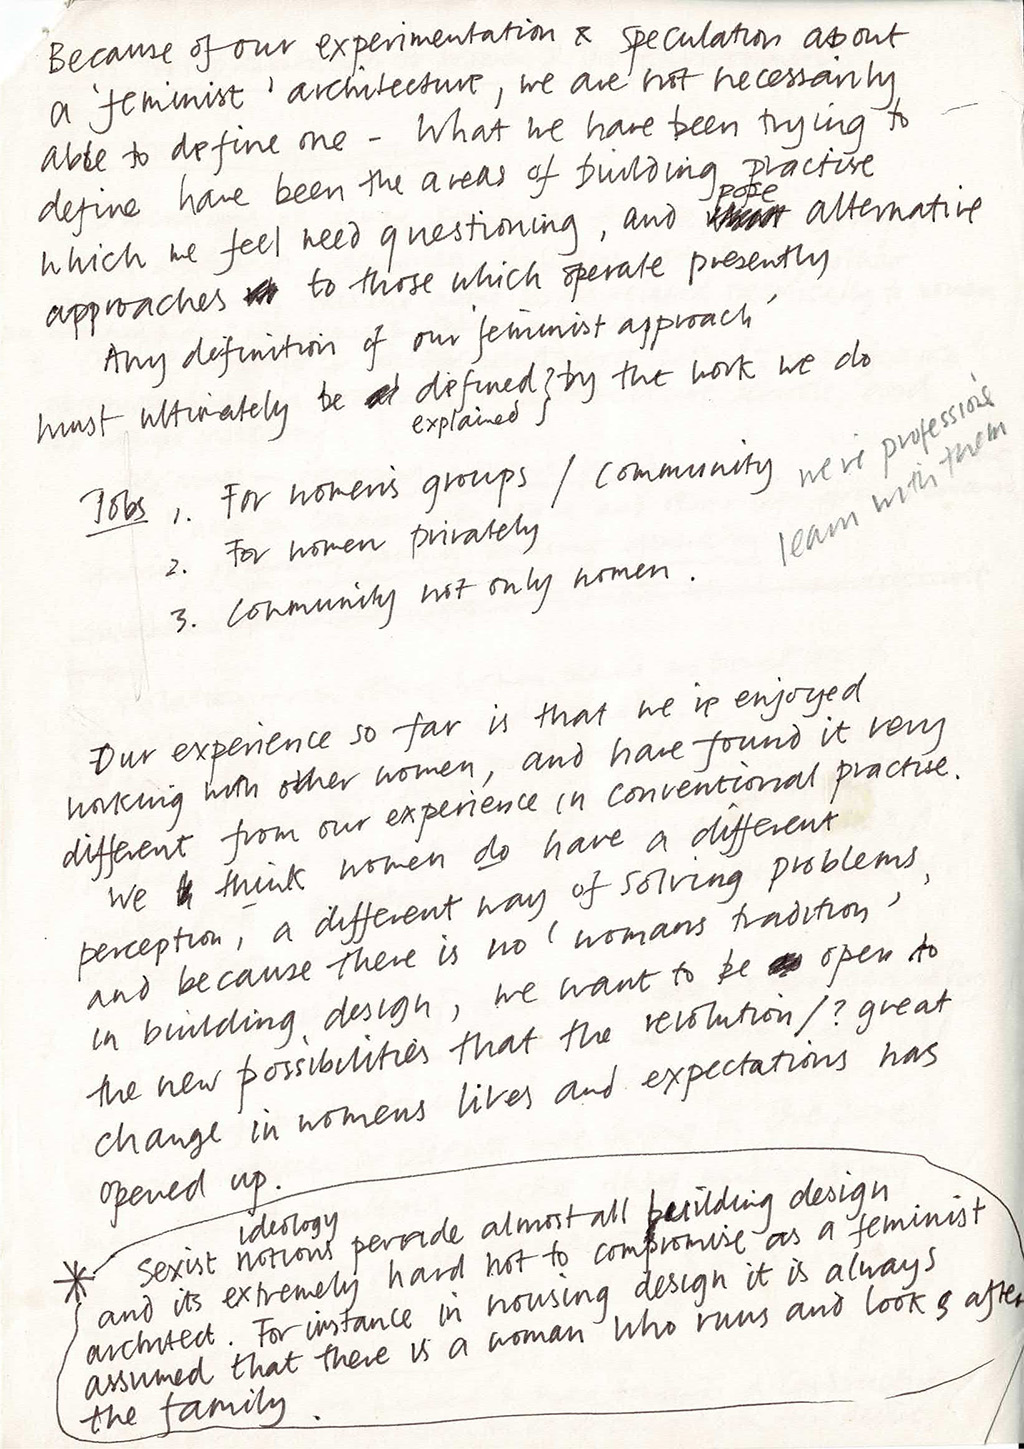 Because of our experimentation & speculation about
a 'feminist' architecture, we are not necessarily
able to define one - What we have been trying to
define have been the areas of building practise
which we feel need questioning, and pose alternative
approaches to those which operate presently
Any definition of our 'feminist approach'
must ultimately be defined } by the work we do
explained }
Jobs 1. For women's groups / Community
we're professions
learn with them
2. For women privately
3. Community not only women.
Our experience so far is that we enjoyed
working with other women, and have found it very
different from our experience in conventional practise.
We think women do have a different
perception, a different way of solving problems,
and because there is no 'womans tradition'
in building design, we want to be open to
the new possibilities that the revolution/? great
change in womens lives and expectations has
opened up.
ideology
* Sexist notions pervade almost all building design
and its extremely hard not to compromise as a feminist
architect. For instance in housing design it is always
assumed that there is a woman who runs and looks after
the family.